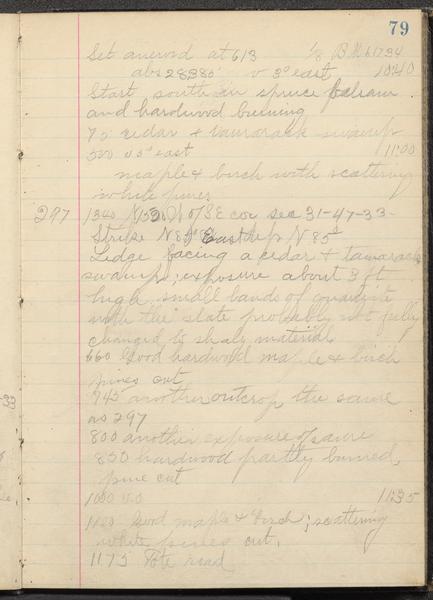 79
Set aneroid at 613 1/8 B.M. 61734
abs 28380 v 3° east 1040
Start south in spruce balsam
and hardwood burning
75 cedar & tamarack swamp
500 v 3° east 1100
maple & birch with scattering
white pines
297 1340 N 530 W of SE cor sec 31-47-33-
Strike N 85 East dip N 85°
Ledge facing a cedar & tamarack
swamp; exposure about 3 ft
high, small bands of quartzite
with the slate probably not fully
changed to shaly material
660 Good hardwood maple & birch
pines cut
745 another outcrop the same
as 297
800 another exposure of same
850 hardwood partly burned,
pine cut
1000 v 0 1135
1100 Good maple & birch; scattering
white pines cut.
1175 Tote road